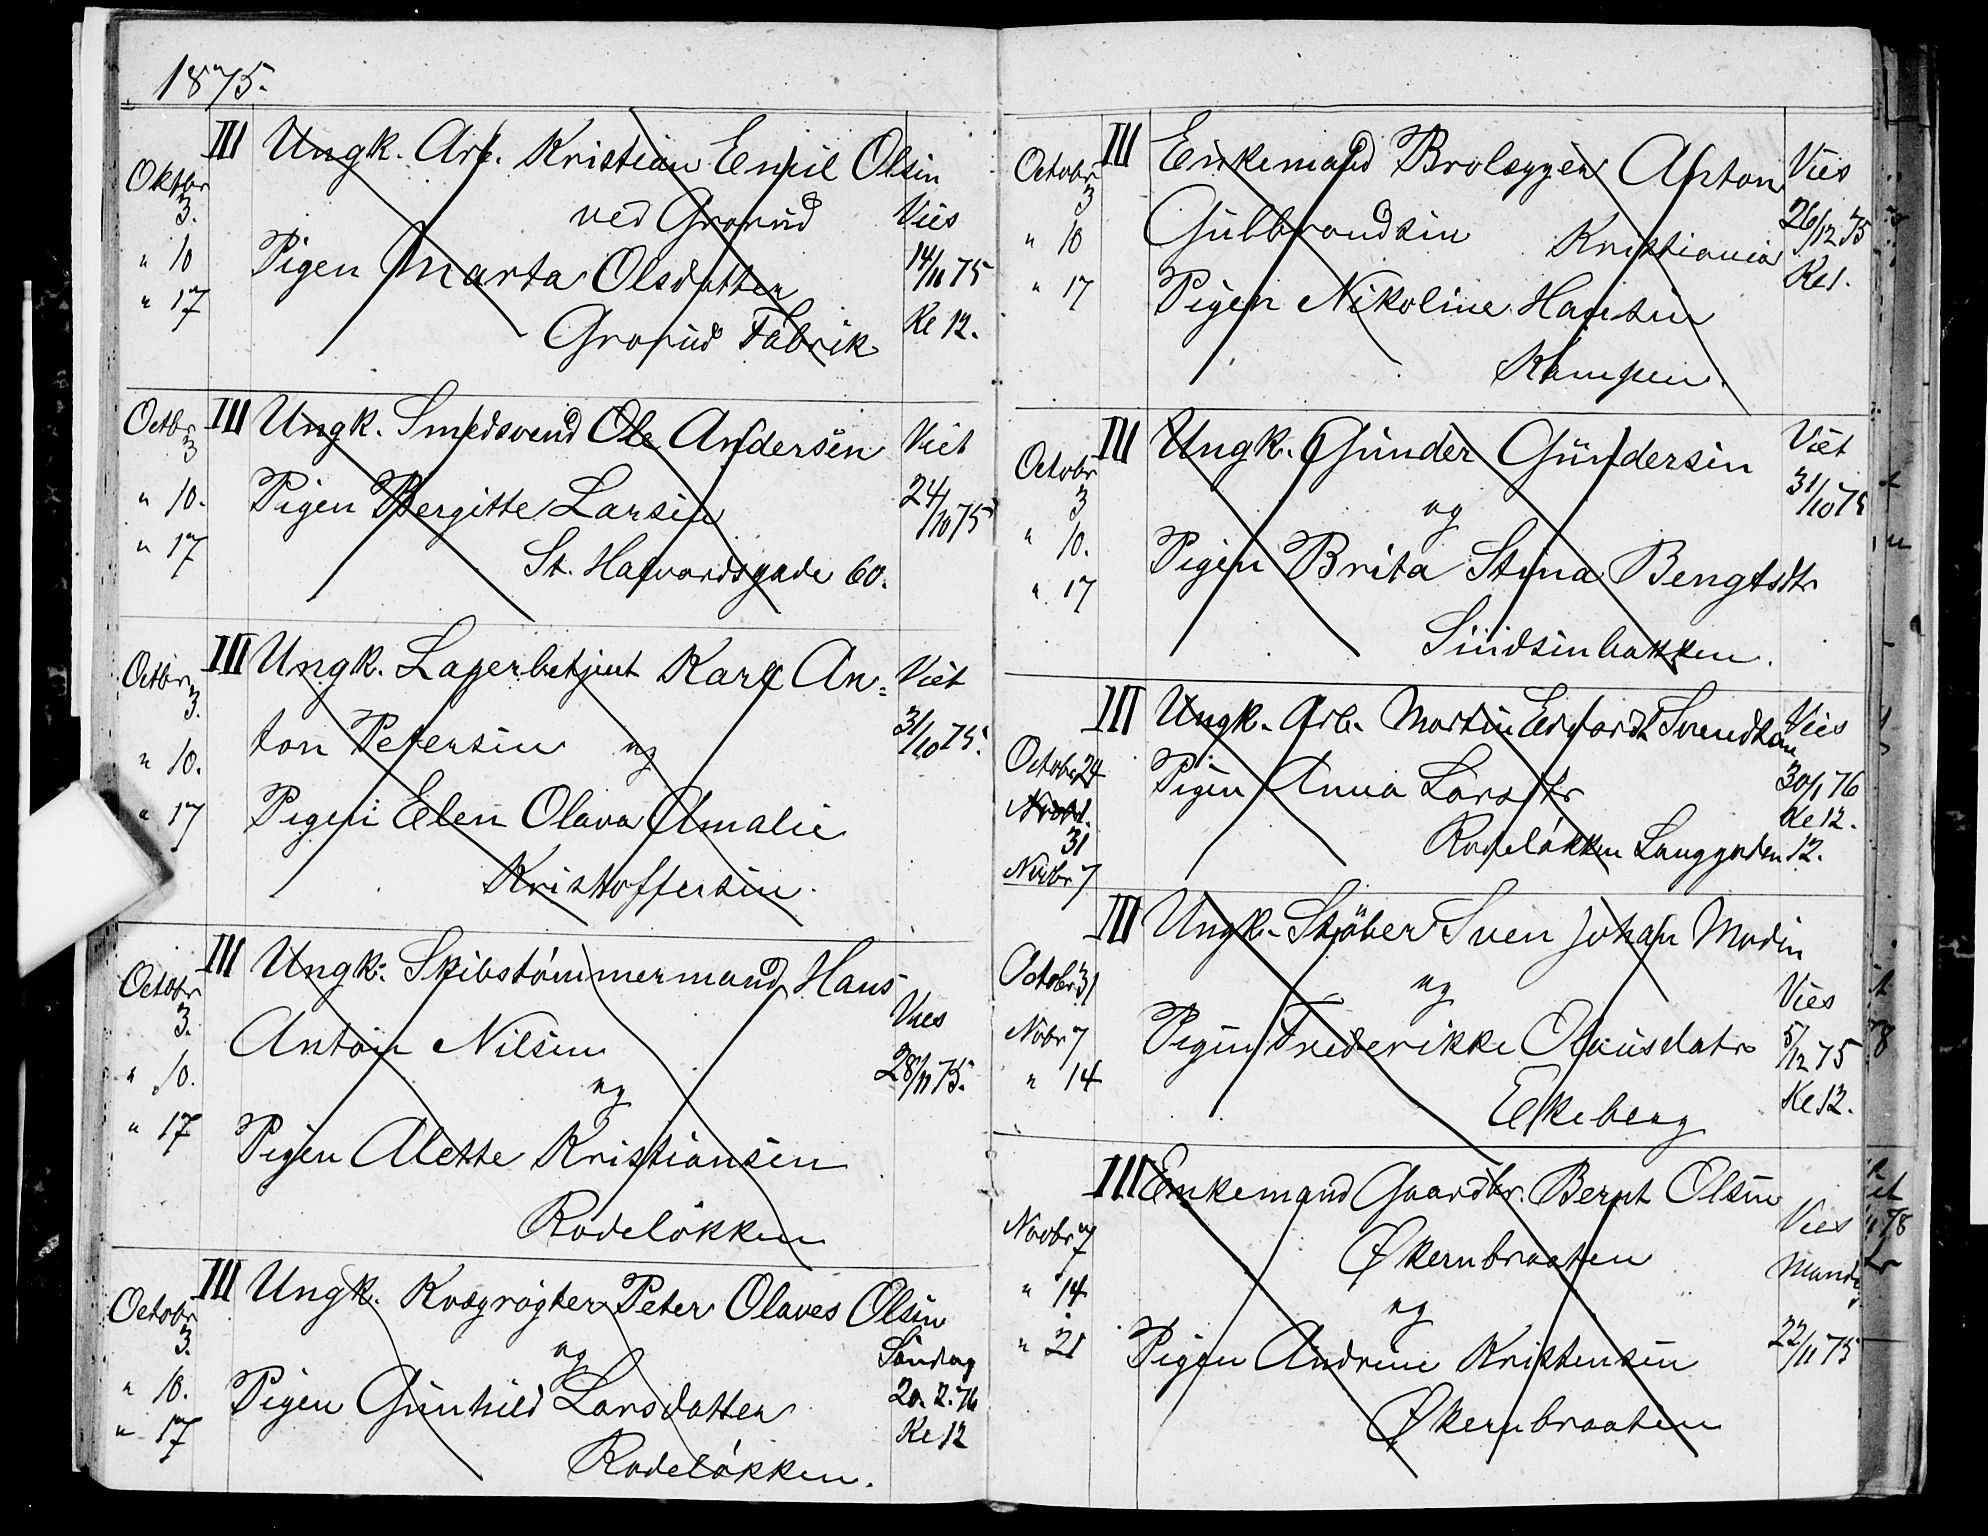 1875.
III Ungk. Arb. Kristian Emil Olsen
Oktbr
3. ved Grorud Vies
" 10 Pigen Marta Olsdatter 14/11 75
" 17 Grorud Fabrik Kl 12.
Octbr III Ungk. Smedsvend Ole Andersen Viet
3
" 10. Pigen Bergitte Larsen 24/10 75
" 17 St. Halvardsgade 60.
Octbr III Ungk. Lagerbetjent Karl An= Viet
3. ton Petersen og 31/10 75.
" 10.
" 17 Pigen Elen Olava Amalie
Kristoffersen.
Octobr III Ungk. Skibstømmermand Hans
3. Anton Nilsen Vies
" 10. og 28/11 75.
" 17 Pigen Alette Kristiansen
Rodeløkken
Octobr III Ungk. Kvægrøgter Peter Olaves Olsen
3. og Søndag
" 10. Pigen Gunhild Larsdatter 20.2.76
" 17 Rodeløkken. Kl 12
Octobr III Enkemand Brolægger Anton Vies
3 Gulbrandsen 26/12 75
" 10 Kristiania Kl 1.
" 17 Pigen Nikoline Hansen
Kampen.
Octobr III Ungk. Gunder Gundersen Viet
3 og 31/10 75
" 10. Pigen Brita Stina Bengtsdtr
" 17
III Ungk. Arb. Martin Edvardt Svendsen Vies
Octobr 24 Pigen Anna Larsdtr 30/1 76
31 Kl 12.
Novbr 7 Rodeløkken Langgaden 12.
III Ungk. Støber Sven Johan Modin
Octobr 31 og Vies
Nobr 7 Pigen Frederikke Olausdatr 5/12 75
" 14 Ekeberg Kl 12.
III Enkemand Gaardbr. Bernt Olsen
Novbr 7 Økernbraaten Vies
" 14 og Mand
" 21 Pigen Andrine Kristensen 22/11 75
Økernbraaten